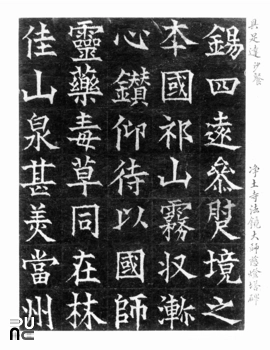 錫四遠叅境之
本國祁山霧収漸
心鑽仰待以國師
靈藥毒草同在林
佳山泉甚美當州
具足達
净土寺法鏡大師慈燈塔碑